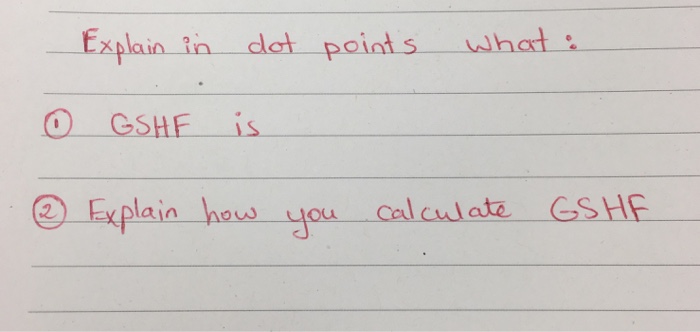 Explain in dot points what:
① GSHF is
② Explain how you calculate GSHF